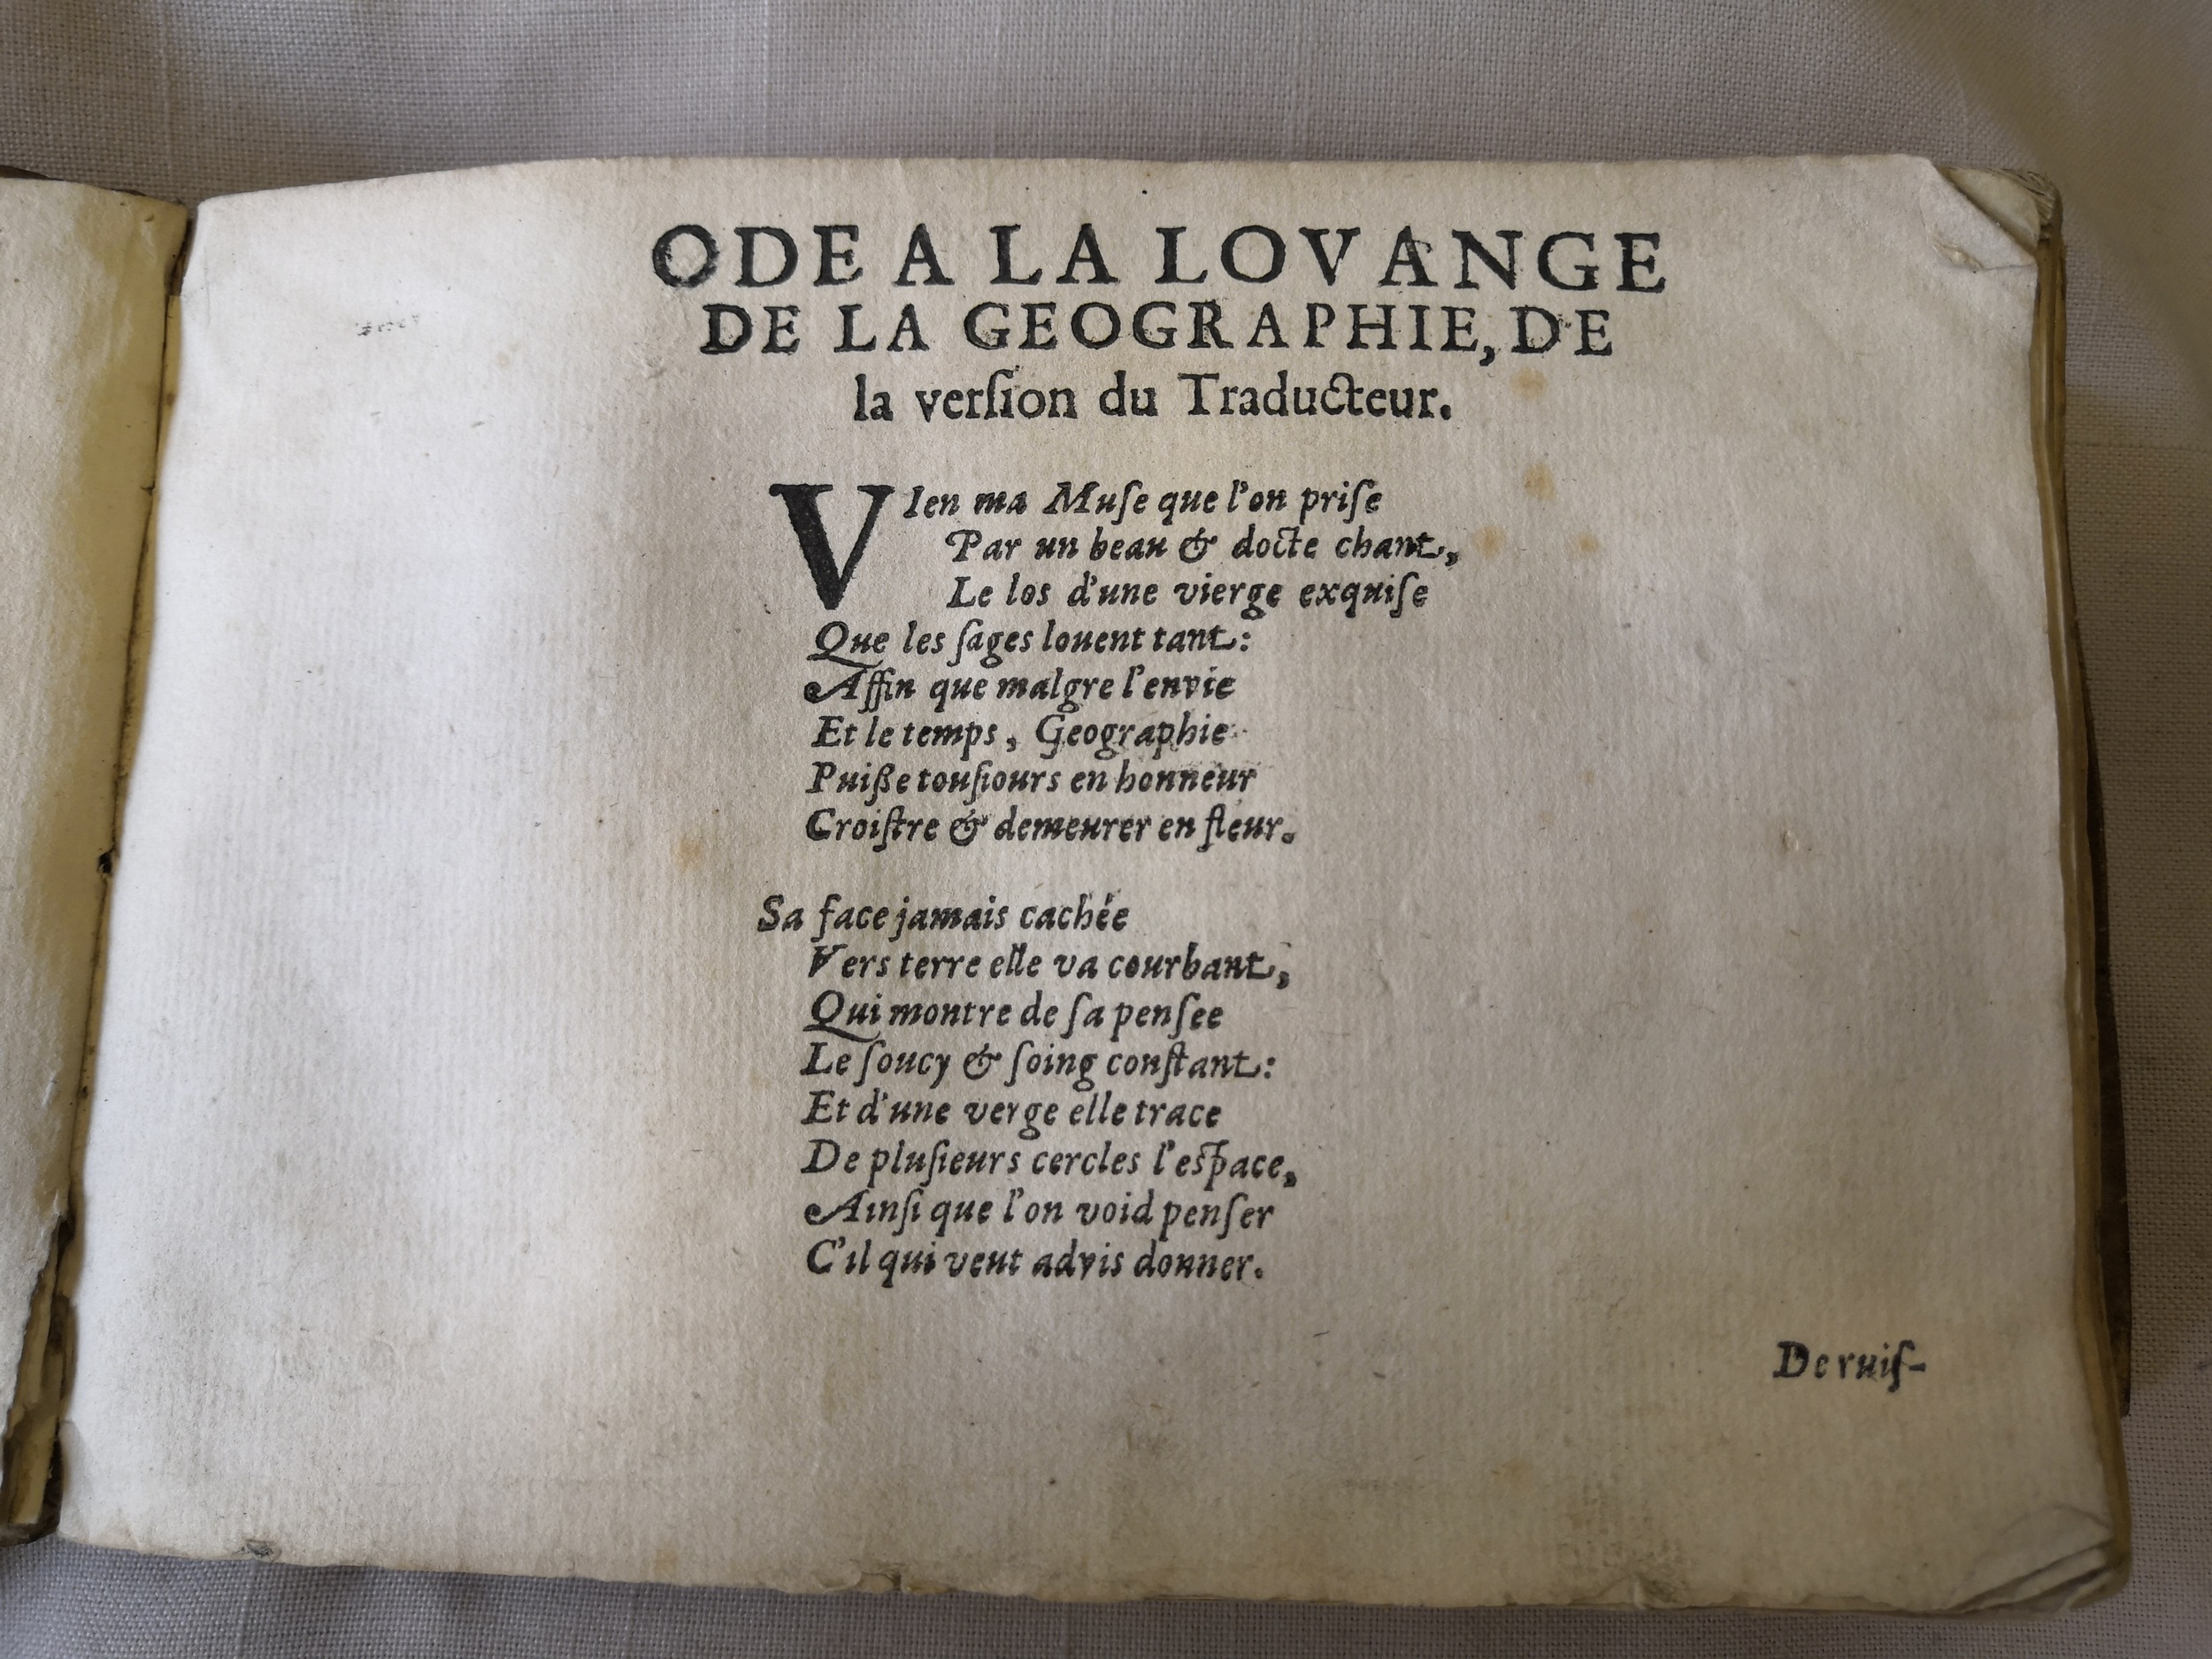 ODE A LA LOVANGE
DE LA GEOGRAPHIE, DE
la verſion du Traducteur.
VIen ma Muſe que l'on priſe
Par un beau & docte chant,
Le los d'une vierge exquiſe
Que les ſages louent tant:
Affin que malgre l'envie
Et le temps, Geographie
Puiße touſiours en honneur
Croiſtre & demeurer en fleur.
Sa face jamais cachée
Vers terre elle va courbant,
Qui montre de ſa penſee
Le ſoucy & ſoing conſtant:
Et d'une verge elle trace
De pluſieurs cercles l'eſpace,
Ainſi que l'on void penſer
C'il qui veut advis donner.
De ruiſ-